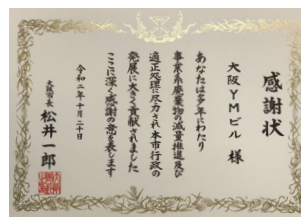 感謝状
大阪YMビル 様
あなたは多年にわたり
事業系廃棄物の減量推進及び
適正処理に尽力され本市行政の
発展に大きく貢献されました
ここに深く感謝の意を表します
令和二年十月二十日
大阪市長 松井一郎